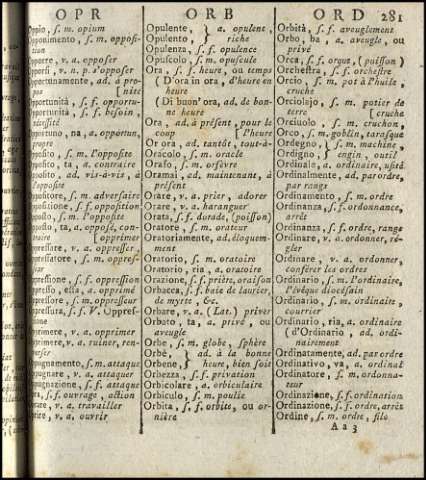 OPR ORB ORD 281
Oppio, ſ. m. opium
Opponimento, ſ. m. oppoſi-
tion
Opporre, v. a. oppoſer
Opporſi, v. n. p. s'oppoſer
Opportunamente, ad. à pro-
pos [ nité
Opportunità, ſ. f. opportu-
Opportunità, ſ. f. beſoin,
néceſſité
Opportuno, na, a. opportun,
propre
Oppoſito, ſ. m. l'oppoſite
Oppoſito, ta, a. contraire
Oppoſito, ad. vis-à-vis, à
l'oppoſite
Oppoſitore, ſ. m. adverſaire
Oppoſizione, ſ. f. oppoſition
Oppoſto, ſ. m. l'oppoſite
Oppoſto, ta, a. oppoſé, con-
traire [ opprimer
Oppreſſare, v. a. oppreſſer,
Oppreſſatore, ſ. m. oppreſ-
ſeur
Oppreſſione, ſ. f. oppreſſion
Oppreſſo, eſſa, a. opprimé
Oppreſſore, ſ. m. oppreſſeur
Oppreſſura, ſ. f. V. Oppreſ-
ſione
Opprimere, v. a. opprimer
Opprimere, v. a. ruiner, ren-
verſer
Oppugnamento, ſ. m. attaque
Oppugnare, v. a. attaquer
Oppugnazione, ſ. f. attaque
Opra, ſ. f. ouvrage, action
Oprare, v. a. travailler
Oprire, v. a. ouvrir
Opulente, } a. opulent,
Opulento, } riche
Opulenza, ſ. f. opulence
Opuſcolo, ſ. m. opuſcule
Ora, ſ. f. heure, ou temps
{ D'ora in ora, d'heure en
heure
{ Di buon' ora, ad. de bon-
ne heure
Ora, ad. à préſent, pour le
coup [ l'heure
Or ora, ad. tantôt, tout-à-
Oracolo, ſ. m. oracle
Orafo, ſ. m. orfévre
Oramai, ad. maintenant, à
préſent
Orare, v. a. prier, adorer
Orare, v. a. haranguer
Orata, ſ. f. dorade, (poiſſon)
Oratore, ſ. m. orateur
Oratoriamente, ad. éloquem-
ment
Oratorio, ſ. m. oratoire
Oratorio, ria, a. oratoire
Orazione, ſ. f. prière, oraiſon
Orbacca, ſ. f. baie de laurier,
de myrte, &c.
Orbare, v. a. (Lat.) priver
Orbato, ta, a. privé, ou
aveugle
Orbe, ſ. m. globe, ſphère
Orbè, } ad. à la bonne
Orbene, } heure, bien ſoit
Orbezza, ſ. f. privation
Orbicolare, a. orbiculaire
Orbiculo, ſ. m. poulie
Orbita, ſ. f. orbite, ou or-
nière
Orbità, ſ. f. aveuglement
Orbo, ba, a. aveugle, ou
privé
Orca, ſ. f. orque, (poiſſon)
Orcheſtra, ſ. f. orcheſtre
Orcio, ſ. m. pot à l'huile,
cruche
Orciolajo, ſ. m. potier de
terre [ cruche
Orciuolo, ſ. m. cruchon,
Orco, ſ. m. goblin, taraſque
Ordegno, } ſ. m. machine,
Ordigno, } engin, outil
Ordinale, a. ordinaire, uſité
Ordinalmente, ad. par ordre,
par rangs
Ordinamento, ſ. m. ordre
Ordinanza, ſ. f. ordonnance,
arrêt
Ordinanza, ſ. f. ordre, rangs
Ordinare, v. a. ordonner, ré-
gler
Ordinare, v. a. ordonner,
conférer les ordres
Ordinario, ſ. m. l'ordinaire,
l'évêque diocéſain
Ordinario, ſ. m. ordinaire,
courrier
Ordinario, ria, a. ordinaire
{ d'Ordinario, ad. ordi-
nairement
Ordinatamente, ad. par ordre
Ordinativo, va, a. ordinal
Ordinatore, ſ. m. ordonna-
teur
Ordinazione, ſ. f. ordination
Ordinazione, ſ. f. ordre, arrêt
Ordine, ſ. m. ordre, file
A a 3